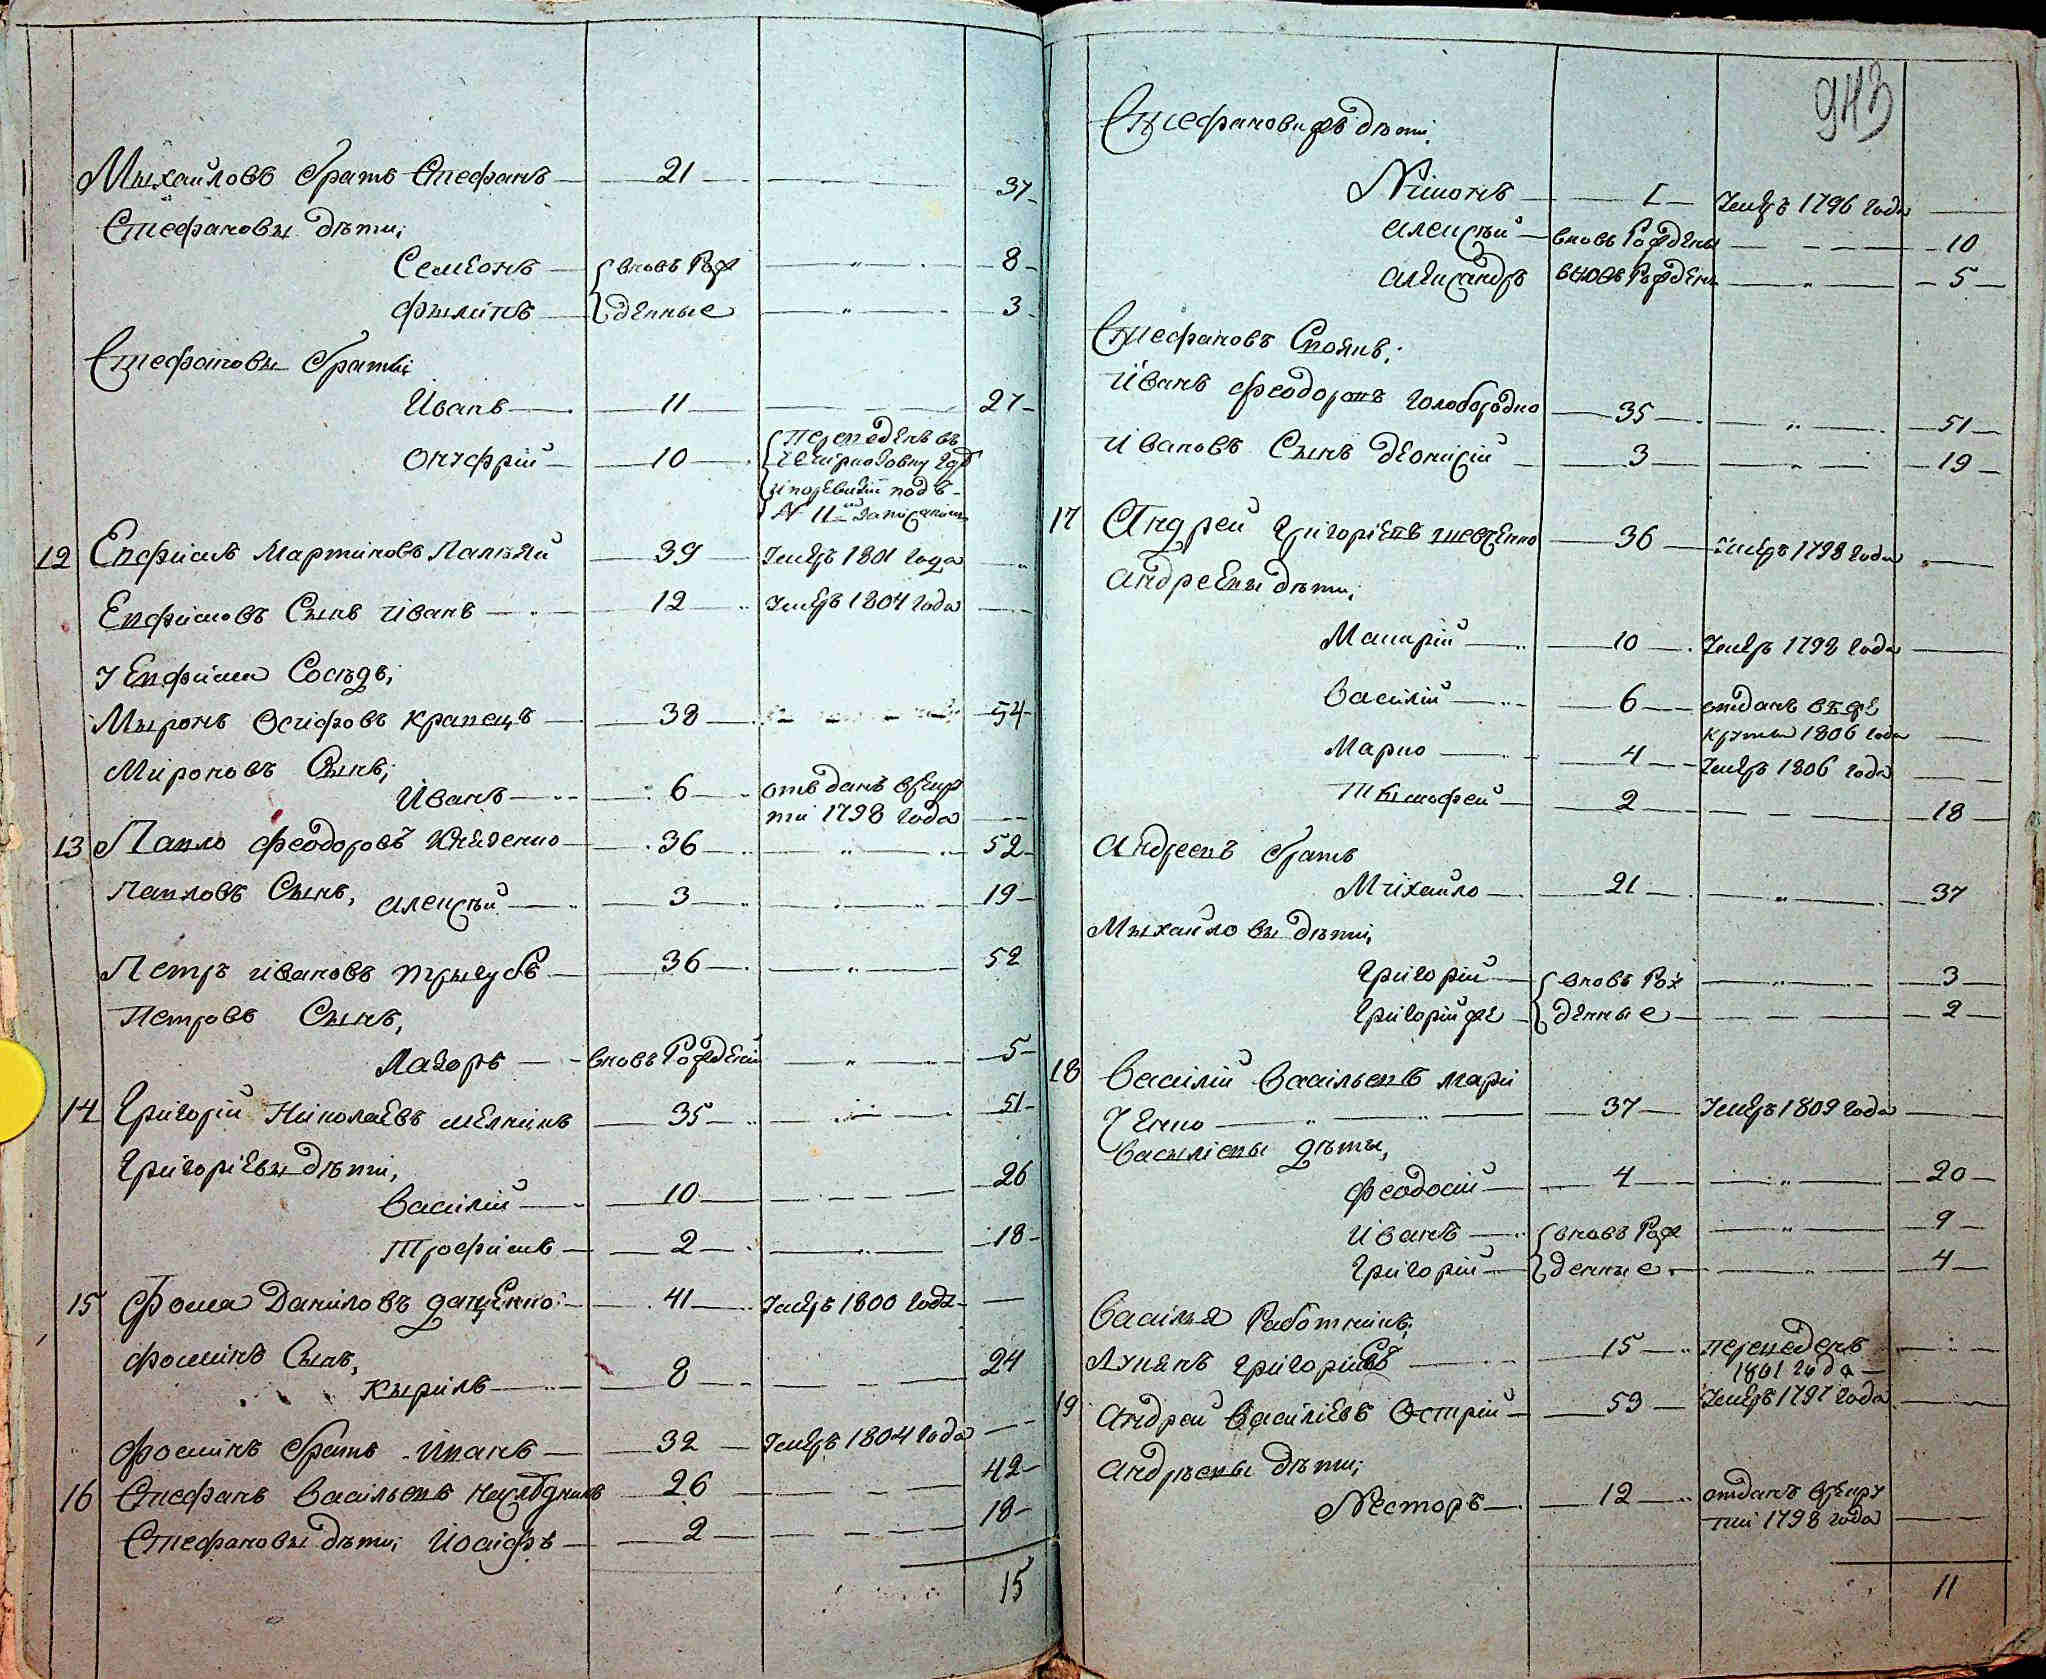 Мыхайловъ братъ Стефанъ — 21 — 37
Стефановы дѣти;
Семіонъ — вновь рож — 8
Фылипъ — денные — 3
Стефановы братья
Иванъ — 11 — 27
Онуфрій — 10 — переведенъ въ
подъ
№ 11 записаніи
12 Ефимъ Мартиновъ Палѣй — 39 — Умеръ 1801 года
Ефимовъ Сынъ Иванъ — 12 — Умеръ 1804 года
У Ефима Сосѣдъ;
Мыронъ Осифовъ Кравецъ — 38 — 54
Мироновъ Сынъ;
Иванъ — 6 — отъданъ врекру
ти 1798 года
13 Павло Феодоровъ — 36 — 52
Павловъ Сынъ, Алексѣй — 3 — 19
Петръ Ивановъ Трыгубъ — 36 — 52
Петровъ Сынъ,
Лазоръ — вновь рожденій — 5
14 Григорій Николаевъ — 35 — 51
Григоріевы дѣти,
Василій — 10 — 26
Трофимъ — 2 — 18
15 Фома Даниловъ Даценко — 41 — Умеръ 1800 года
Фоминъ Сынъ,
Кырилъ — 8 — 24
Фоминъ братъ Иванъ — 32 — Умеръ 1804 года
16 Стефанъ Васильевъ — 26 — 42
Стефановы дѣти; Иосифъ — 2 — 18
15
943
Стефановижъ дѣти;
Умеръ 1796 года
Алексѣй — вновь рожденны — 10
Александръ вновь рожденъ — 5
Стефановъ
Иванъ Феодоровъ Голобородко — 35 — 51
Ивановъ Сынъ Деонисій — 3 — 19
17 Андрей Григоріевъ Шевченко — 36 — Умеръ 1798 года
Андреевы дѣти;
Макарій — 10 — Умеръ 1798 года
Василій — 6 — отданъ въ ре
круты 1806 года
Марко — 4 — Умеръ 1806 года
Тымофей — 2 — 18
Андреевъ братъ
Михайло — 21 — 37
Мыхайловы дѣти,
Григорій — вновь рож — 3
Григорій же — денные — 2
18 Василій Васильевъ Мари
ченко — 37 — Умеръ 1809 года
Васыліевы дѣты,
Феодосій — 4 — 20
Иванъ — вновь рож — 9
Григорій — денные — 4
Василія Работникъ;
Лукянъ Григоріевъ — 15 — переведенъ
1801 года
19 Андрей Василіевъ Острій — 53 — Умеръ 1797 года
Андрѣевы дѣти;
Несторъ — 12 — отданъ врекру
ти 1798 года
11